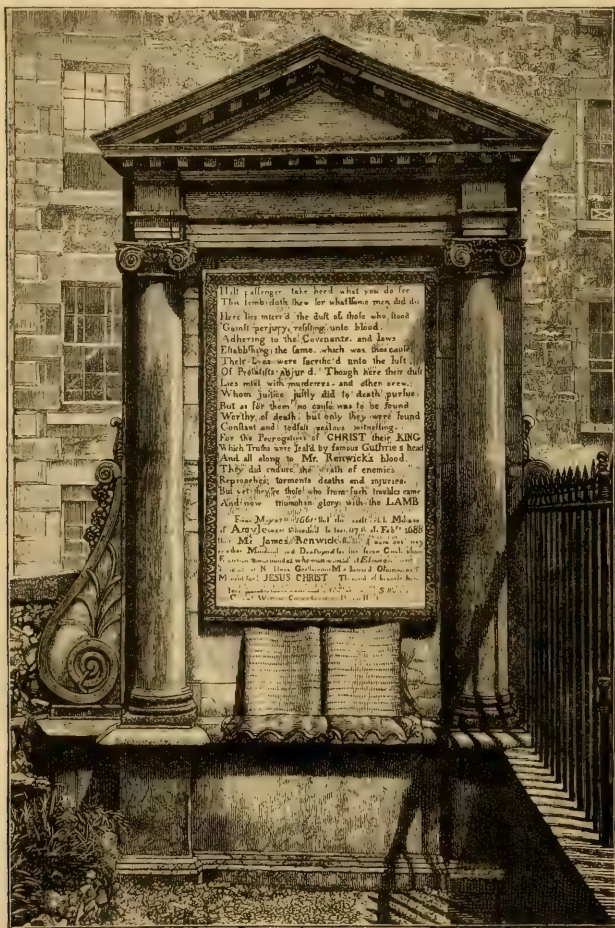 Halt passenger take heed what you do see
This tomb doth shew for what some men did die
Here lies interr'd the dust of those who stood
'Gainst perjury, resisting unto blood.
Adhering to the Covenants, and laws
Establishing the same, which was the cause
Their lives were sacrific'd unto the lust
Of Prelatists abjur'd. Though here their dust
Lies mixt with murderers, and other crew,
Whom justice justly did to death pursue:
But as for them no cause was to be found
Worthy of death, but only they were found
Constant and stedfast zealous witnessing,
For the Prerogatives of CHRIST their KING
Which Truths were seal'd by famous Guthrie's head
And all along to Mr. Renwick's blood.
They did endure the wrath of enemies
Reproaches; torments deaths and injuries.
But yet they're those who from such troubles came
And now triumph in glory with the LAMB
From May 1661 that the
of Argyle was beheaded to the 17th of Feb.y 1688
that Mr. James Renwick
Murdered and Destroyed for the same Cause
Edinburgh
of Noblemen Gentlemen Ministers
for JESUS CHRIST The most of them